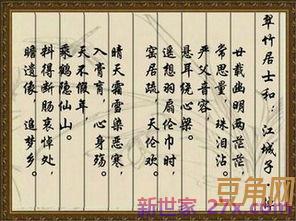 翠竹居士和：江城子
廿载幽明两茫茫，
常思量，珠泪沾。
严父音容，
悬耳绕心梁。
遥想羽扇伦巾时，
窑居疏，天伦欢。
晴天霜雪染恶寒，
入膏肓，心身殇。
天不假年，
乘鹤隐仙山。
料得断肠哀悼处，
瞻遗像，追梦乡。
豆角网
新世家 27x.com